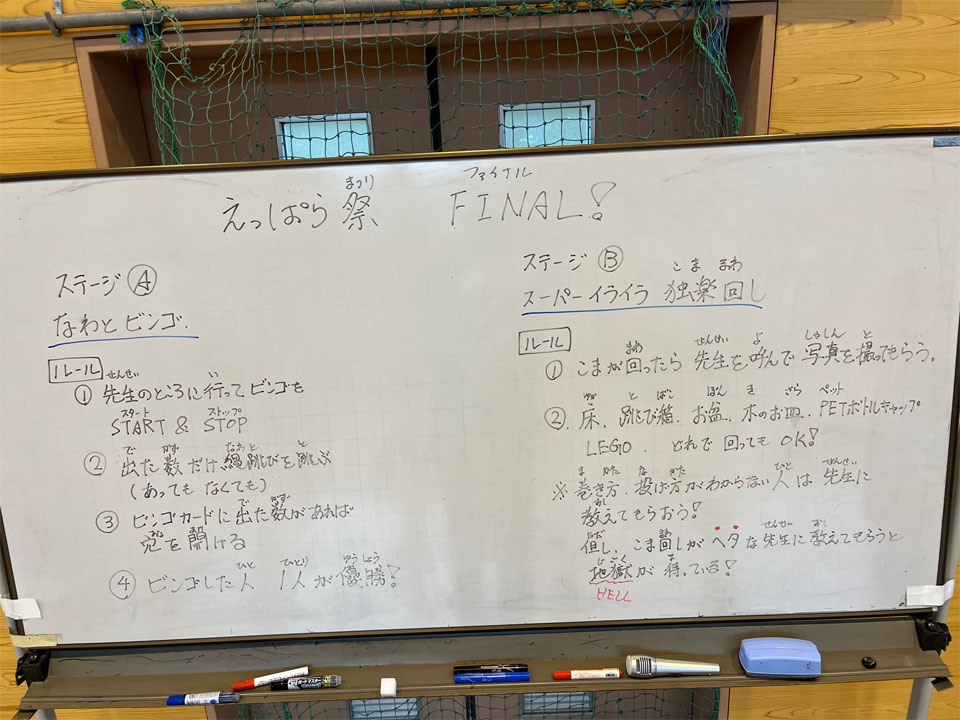 えっぱら祭 FINAL!
まつり ファイナル
ステージ Ⓐ
なわとビンゴ.
ルール
せんせい い
① 先生のところに行ってビンゴを
スタート ストップ
START & STOP
で かず なわと と
② 出た数だけ縄跳びを跳ぶ
(あっても なくても)
で かず
③ ビンゴカードに出た数があれば
あな あ
穴を開ける
ひと ひとり ゆうしょう
④ ビンゴした人 1人が優勝!
ステージ Ⓑ
こま まわ
スーパーイライラ 独楽回し
ルール
まわ せんせい よ しゃしん と
① こまが回ったら 先生を呼んで 写真を撮ってもらう。
ゆか と ばこ ぼん き ざら ペット
② 床、跳び箱、お盆、木のお皿、PETボトルキャップ
LEGO、どれで回ってもOK!
ま かた な かた ひと せんせい
※ 巻き方、投げ方がわからない人は 先生に
おし
教えてもらおう!
ただ まわ せんせい おし
但し、こま回しがヘタな先生に教えてもらうと
じごく ま
地獄が待っている!
HELL